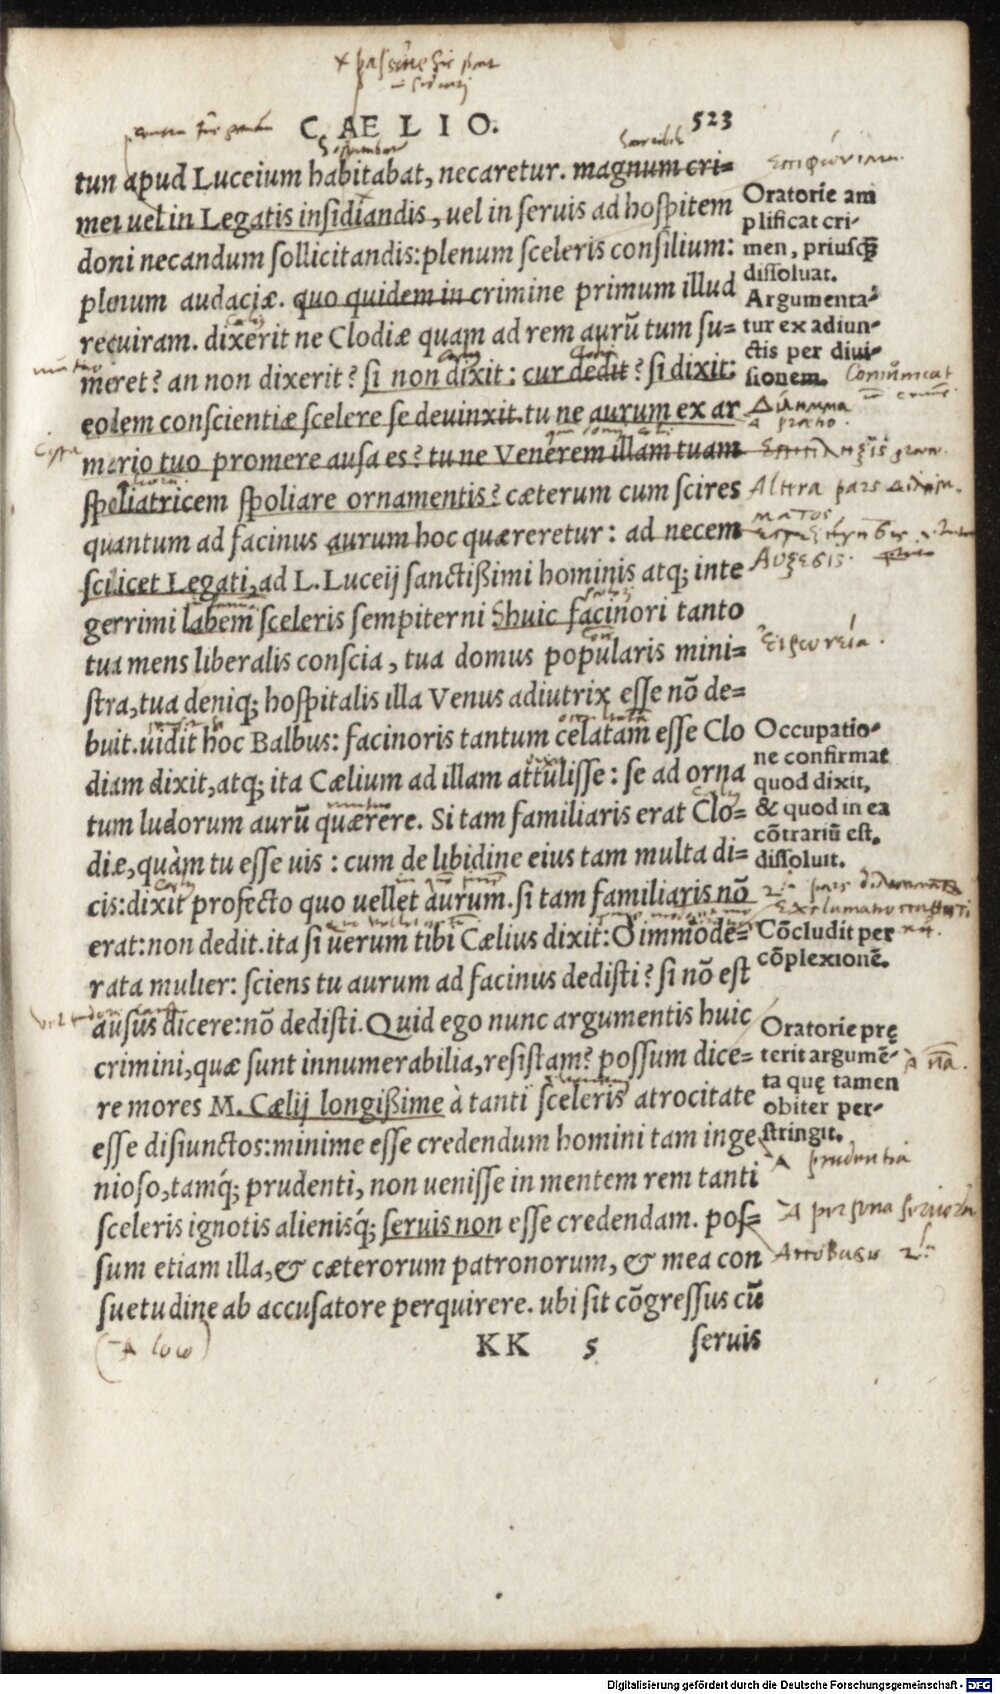 C AE L I O. 523
tun apud Luceium habitabat, necaretur. magnum cri=
men uel in Legatis insidiandis, uel in seruis ad hospitem
doni necandum sollicitandis: plenum sceleris consilium:
plenum audaciæ. quo quidem in crimine primum illud
requiram. dixerit ne Clodiæ quam ad rem aurũ tum su=
meret? an non dixerit? si non dixit: cur dedit? si dixit:
eodem conscientiæ scelere se deuinxit. tu ne aurum ex ar
mario tuo promere ausa es? tu ne Venerem illam tuam
spoliatricem spoliare ornamentis? cæterum cum scires
quantum ad facinus aurum hoc quæreretur: ad necem
scilicet Legati, ad L. Luceij sanctißimi hominis atq; inte
gerrimi labem sceleris sempiterni? huic facinori tanto
tua mens liberalis conscia, tua domus popularis mini=
stra, tua deniq; hospitalis illa Venus adiutrix esse nõ de=
buit. uidit hoc Balbus: facinoris tantum celatam esse Clo
diam dixit, atq; ita Cælium ad illam attulisse: se ad orna
tum ludorum aurũ quærere. Si tam familiaris erat Clo=
diæ, quàm tu esse uis: cum de libidine eius tam multa di=
cis: dixit profecto quo uellet aurum. si tam familiaris nõ
erat: non dedit. ita si uerum tibi Cælius dixit: O immode=
rata mulier: sciens tu aurum ad facinus dedisti? si nõ est
ausus dicere: nõ dedisti. Quid ego nunc argumentis huic
crimini, quæ sunt innumerabilia, resistam? possum dice=
re mores M. Cælij longißime à tanti sceleris atrocitate
esse disiunctos: minime esse credendum homini tam inge
nioso, tamq́; prudenti, non uenisse in mentem rem tanti
sceleris ignotis alienisq́; seruis non esse credendam. pos=
sum etiam illa, & cæterorum patronorum, & mea con
suetudine ab accusatore perquirere. ubi sit cõgressus cũ
KK 5 seruis
Oratorie am
plificat cri-
men, priusq̃
dissoluat.
Argumenta-
tur ex adiun-
ctis per diui-
sionem.
Altera pars
Occupatio-
ne confirmat
quod dixit,
& quod in ea
cõtrariũ est,
dissoluit.
Cõcludit per
cõplexionẽ.
Oratorie prę
terit argumẽ-
ta quę tamen
obiter per-
stringit.
A prudentia
A persona
A loco
Digitalisierung gefördert durch die Deutsche Forschungsgemeinschaft - DFG